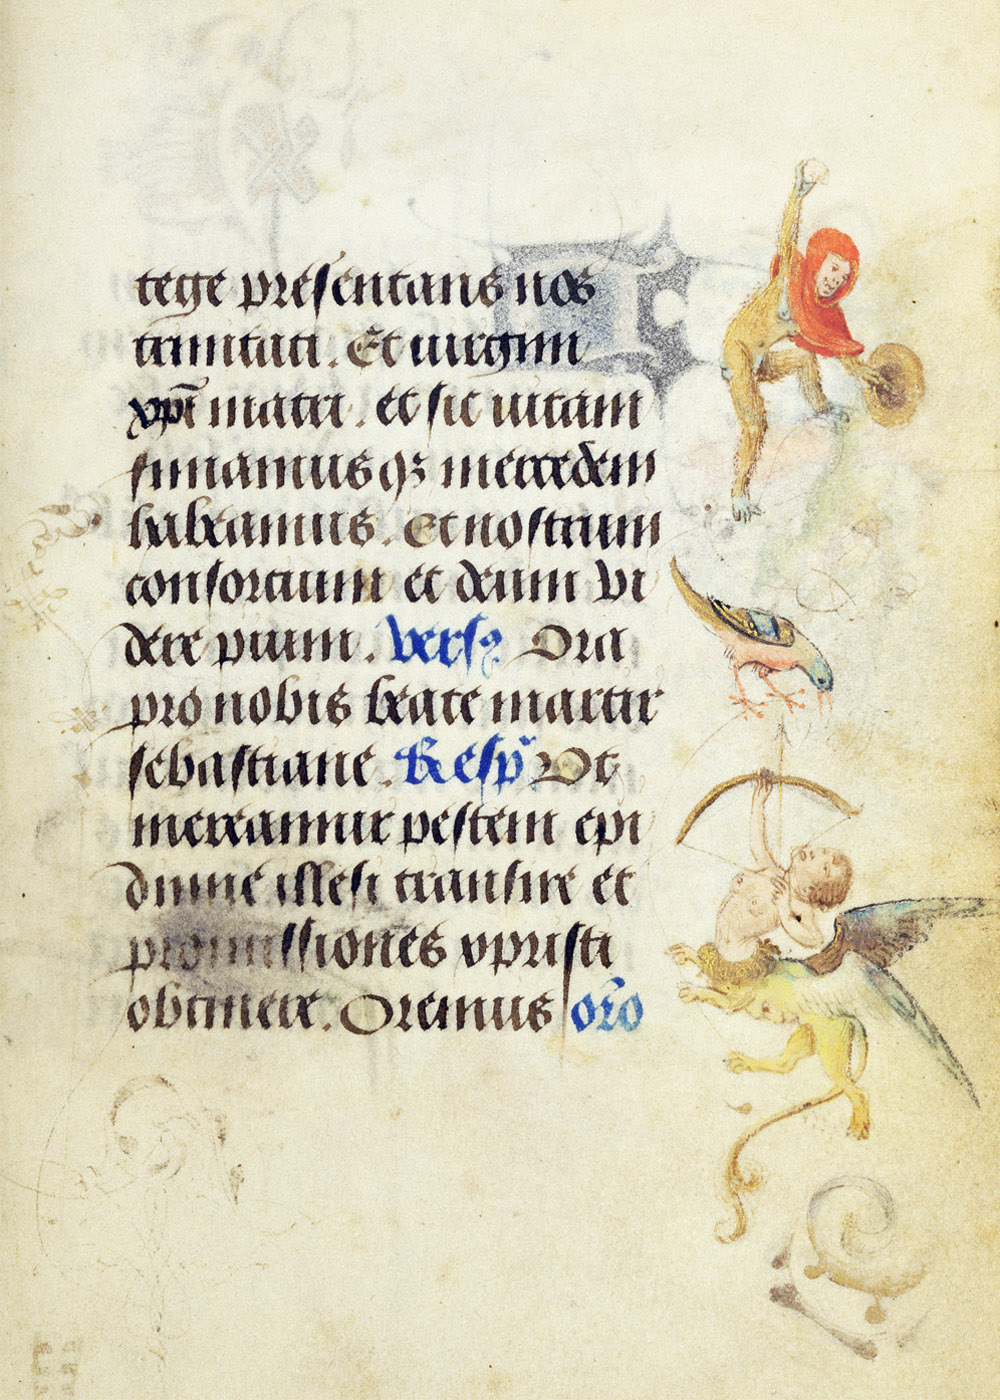 tege presentans nos
trinitati. Et uirgini
xpi matri. et sic uitam
finiamus qz mercedem
habeamus. Et nostrum
consortium et deum vi
dere pium. vers9 Ora
pro nobis beate martir
sebastiane. Resp Vt
mereamur pestem epi
dimie illesi transire et
promissiones xpristi
obtinere. Oremus oro